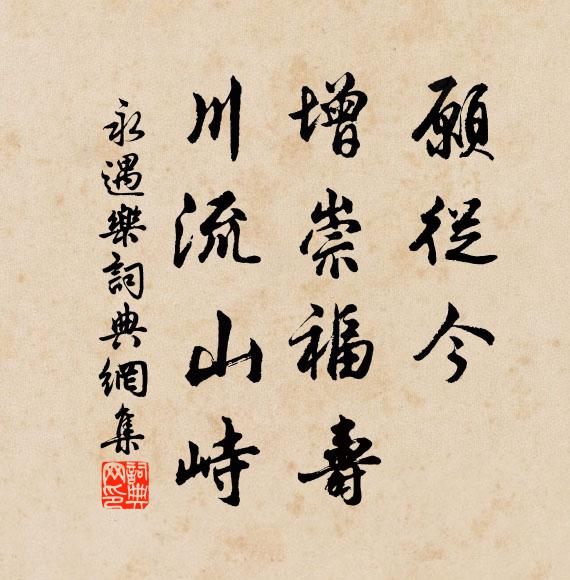 願從今
增崇福壽
川流山峙
永遇樂詞典網集
詞典
网印